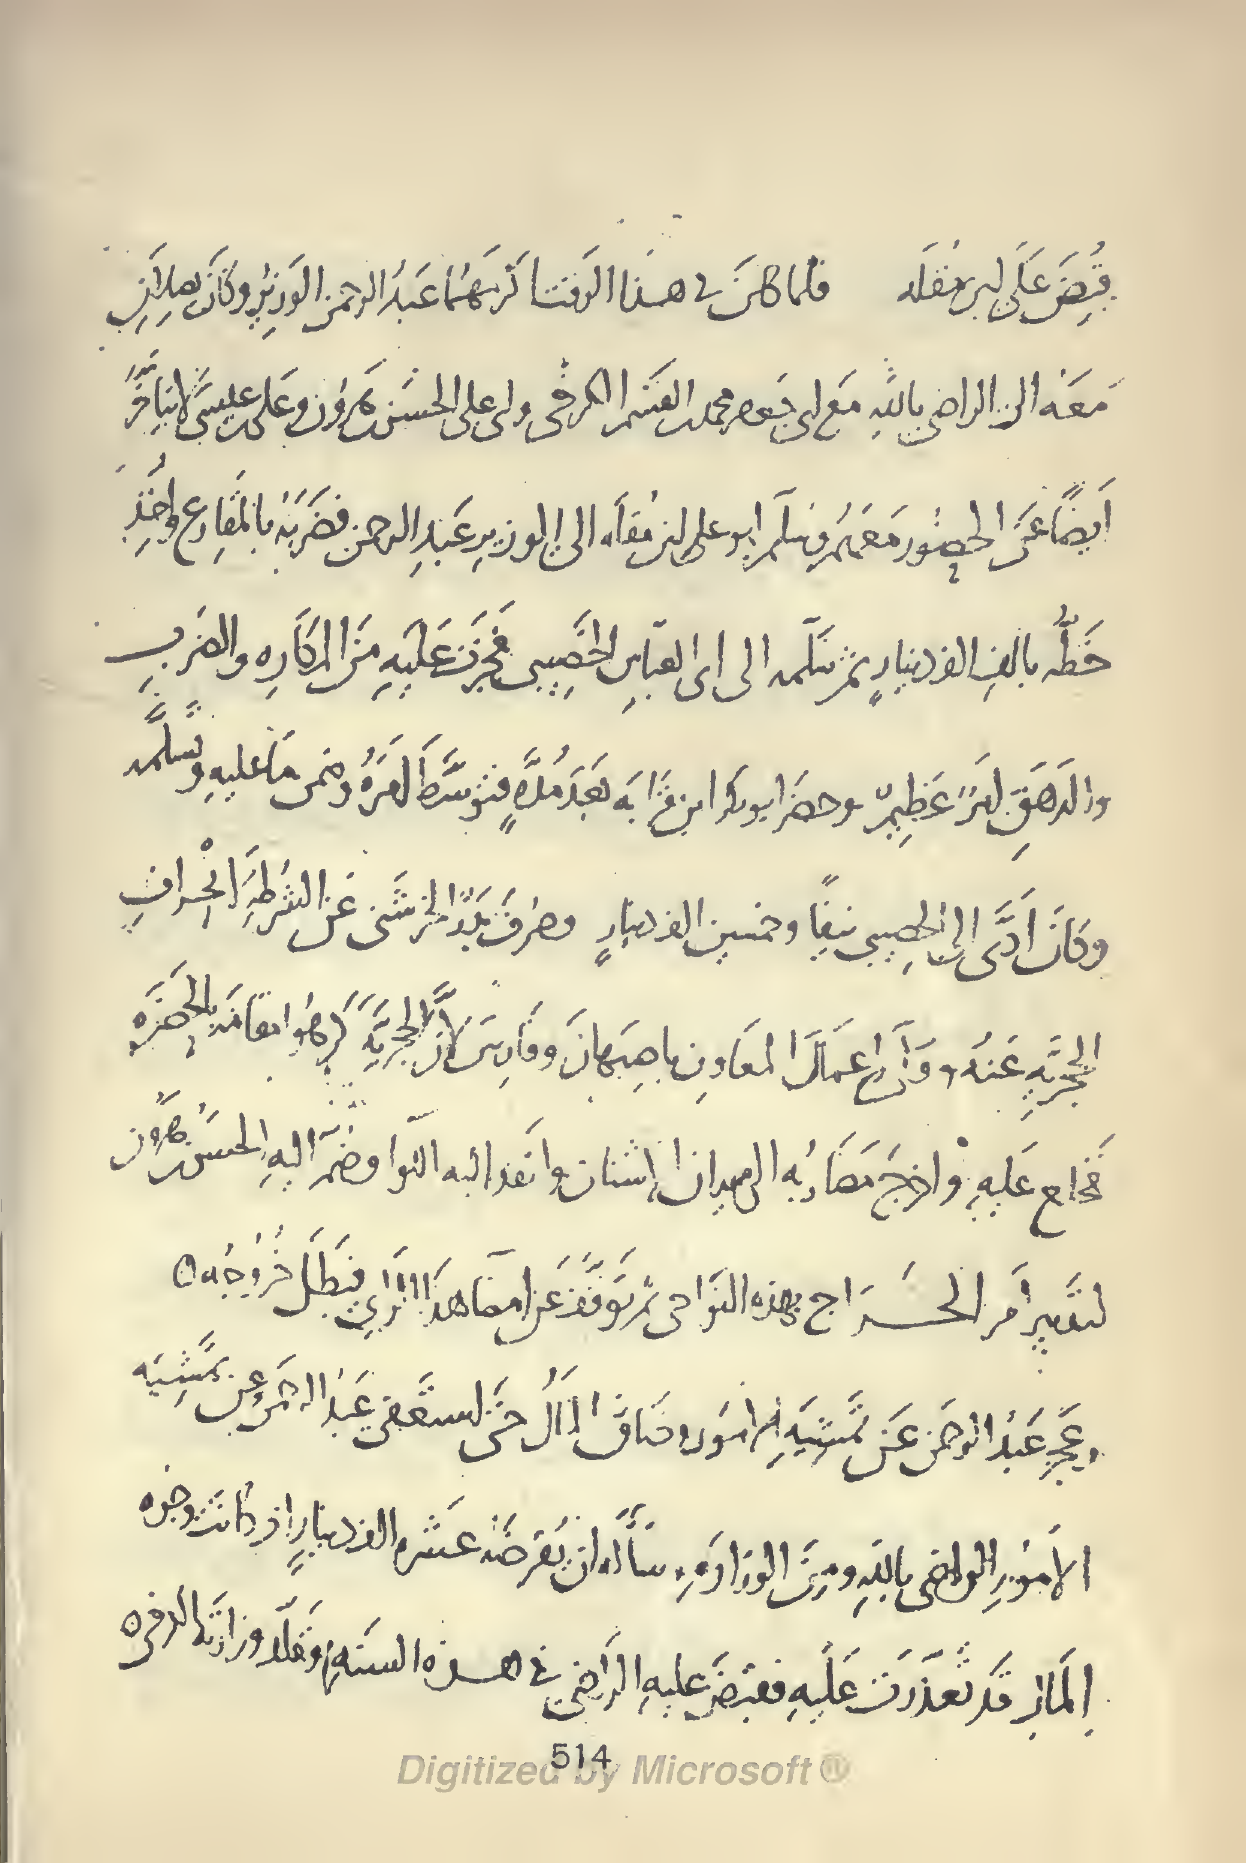 قُبِضَ عَلَى ابن مُقلَه فلما كان في هذا الوقت عَبدُ الرحمن الوَزيرُ وكانَ
مَعَهُ الى الراضى باللهِ مَعَ ابى جَعفر محمد بن القسم الكرخى وابى على الحسَن بن هرون وعَلى بن عيسى
اَيضًا عَنِ الحضُور مَعَهُم وسَلّم ابو على ابن مُقلَه الى الوزيرِ عَبدِ الرحمن فضَرَبَهُ بالمَقارِع واخَذَ
خَطَّهُ بالفِ الف دينارٍ ثم سَلّمه الى ابى العبّاسِ الخَصِيبى فَجَرَت عَلَيهِ مِنَ المكَارِه والضَربِ
والدَهَقِ امرٌ عَظِيمٌ وحضَر ابو بكر ابن قَرَابَه بَعدَ مُدَّةٍ فتوَسَّطَ امرَهُ وضمن مَا عليهِ وتسلَّمه
وكَانَ اَدَّى الى الخصيبى نيفًا وخمسين الف دينارٍ وصُرِفَ بَدرٌ الخرشَنى عَن الشرطهِ
الحُجَرِيَّهِ عَنهُ وقُلِّدَ اعمَالَ المعَاوِن باصبَهانَ وفارِسَ لانَّ الحُجَرِيَّهَ كَرِهُوا مقامَهُ بالحضرَهِ
فخلع عَليهِ واخرَجَ مَضَارِبُه الى ميدان اشنان وانفذ اليه اللوَا وضُمَّ اليهِ الحسَن بن هرون
لتدبيرِ امر الخراج بهذه النوَاحى ثم توَقَّفَ عَن امضاءِ هذا الرَّاىِ فبَطَلَ خُرُوجُه
وعَجِزَ عَبدُ الرحمن عَن تمشيَهِ اموره وضَاقَ المَالُ حَتَّى استعفى عَبدُ الرحمن عن تمشِيَهِ
الاُمُورِ الراضى باللهِ ومِنَ الوزارَهِ وسَأَله ان يُقرضَهُ عشره الف دينارٍ اذ كانَت وجوه
المَالِ قَد تعَذَّرَت عَلَيهِ فقبَضَ عليهِ الرَاضى فى هذه السَنهِ وتقلَّد وزارتَه الكرخى
514
Digitized by Microsoft ®